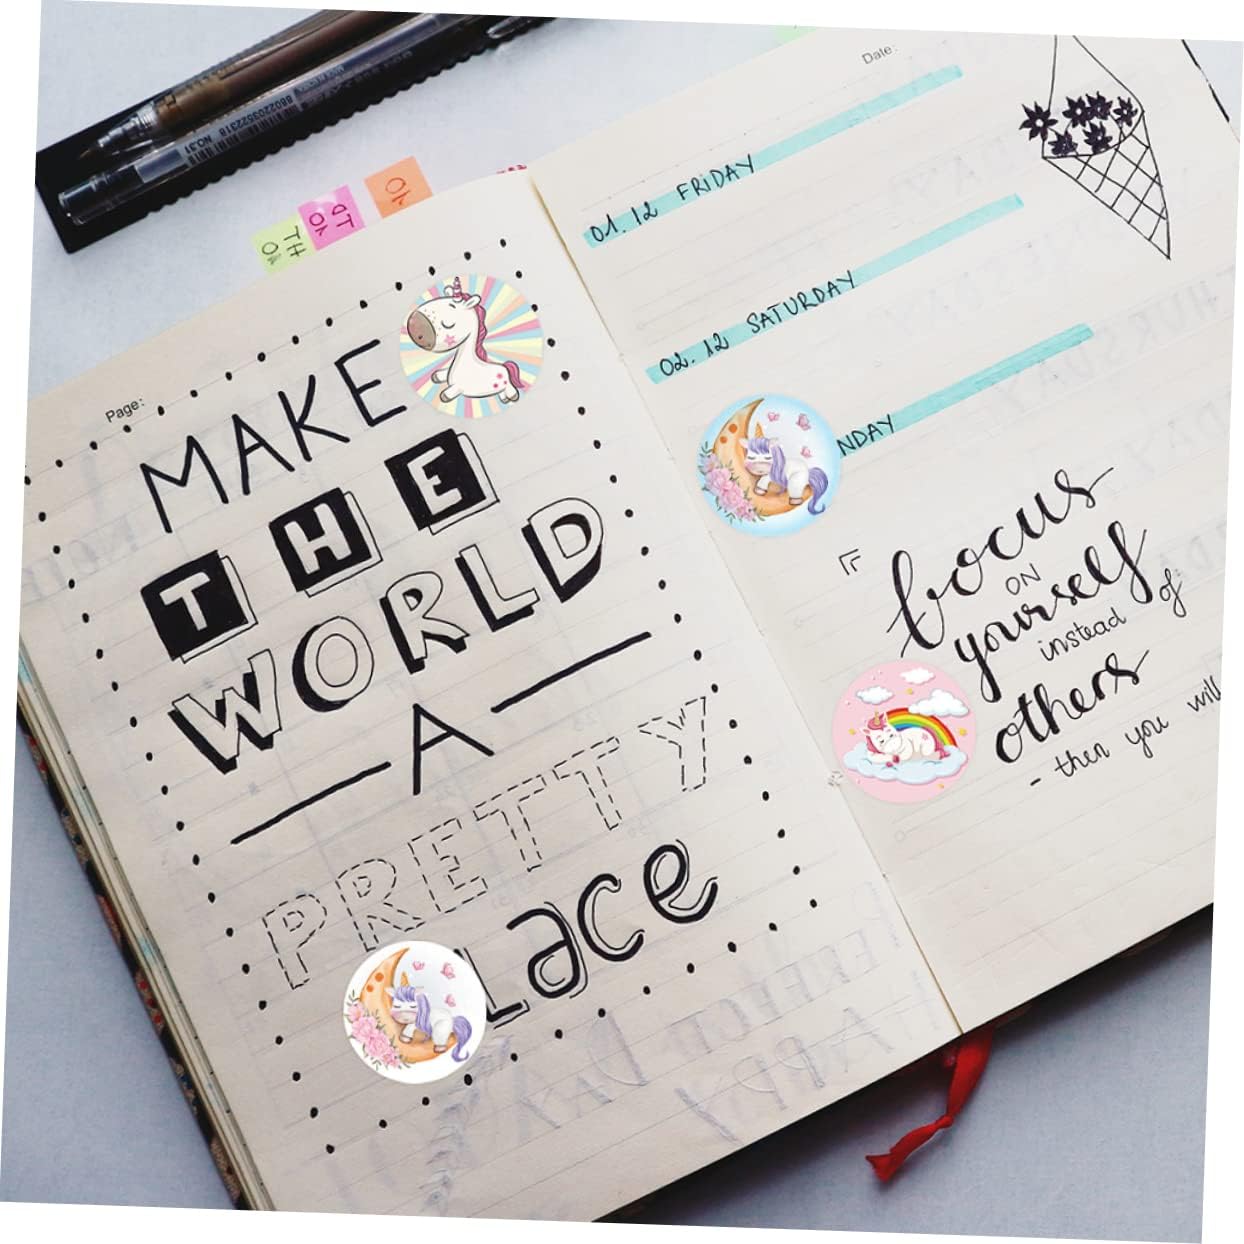 Page:
MAKE
THE
WORLD
A
PRETTY
Lace
Date:
01. 12 FRiDAY
02. 12 SATURDAY
NDAY
focus
ON
yourself
instead of:
others
- then you will
NO.31
8802203522318
TH